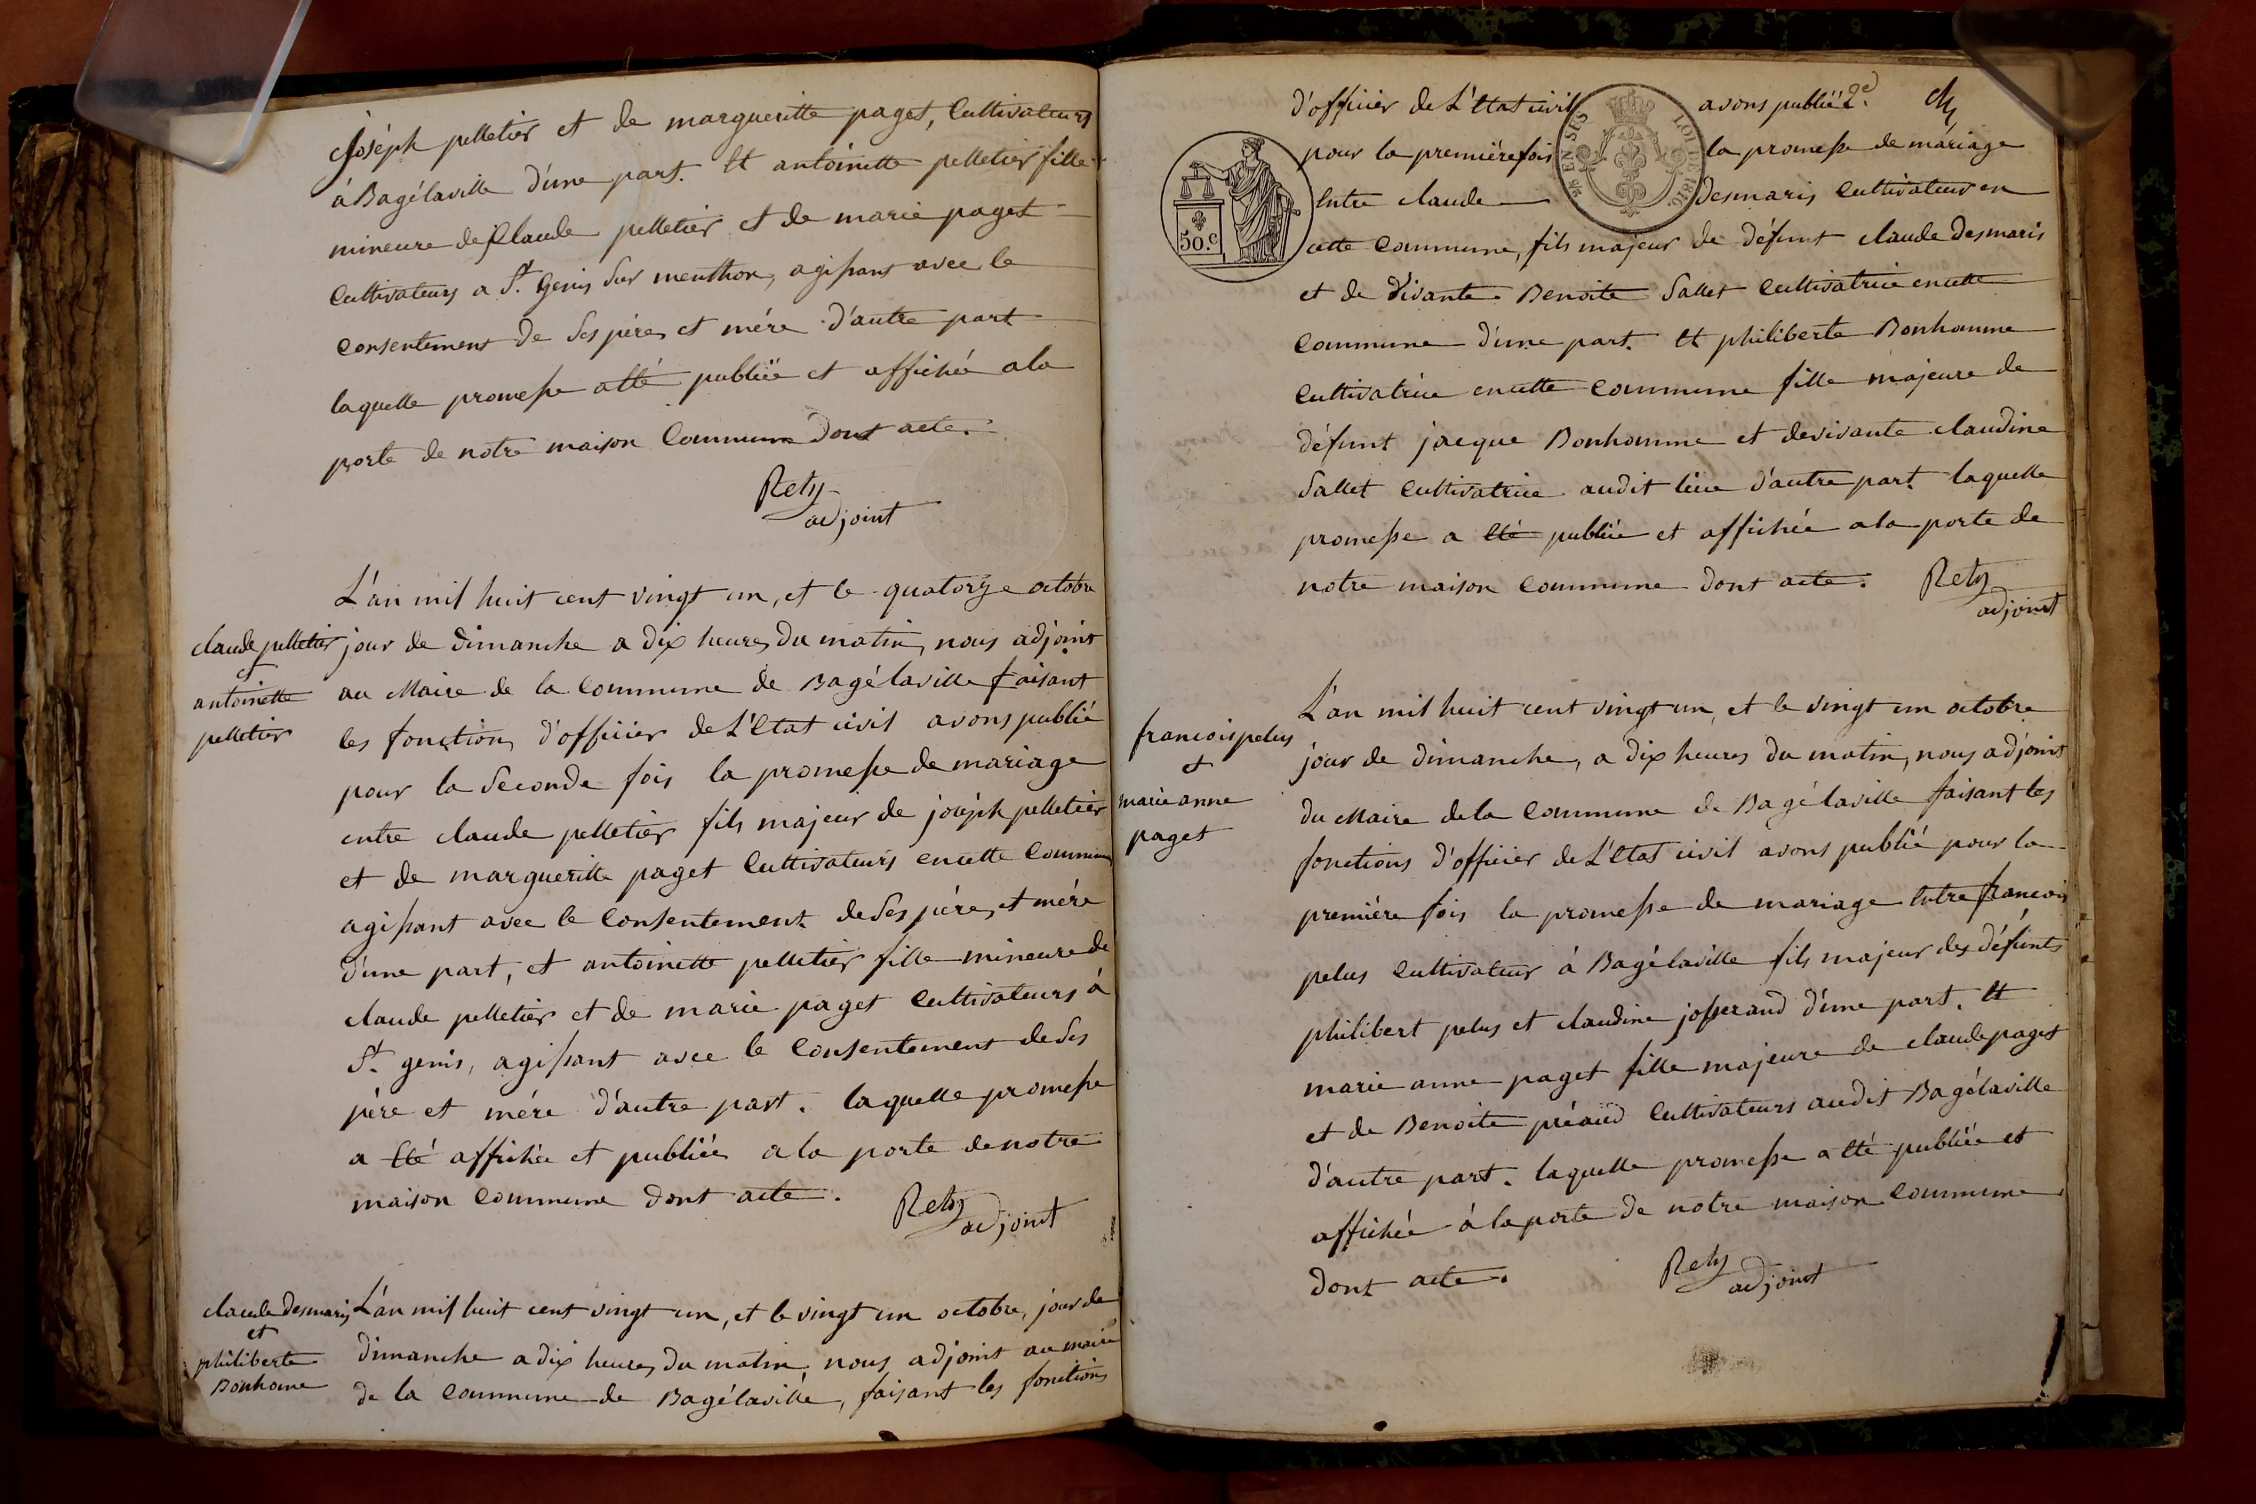 Joséph pelletier et de margueritte paget, Cultivateurs
à Bagélaville d'une part. Et antoinette pelletier fille
mineure de Claude pelletier et de marie paget
Cultivateurs a St. Genis Sur menthon, agissant avec le
Consentement de Ses père et mére d'autre part
laquelle promesse a été publiée et affichée a la
porte de notre maison Commune Dont acte.
Rety
adjoint
L'an mil huit cent vingt un, et le quatorze octobre
claude pelletier
et
antoinette
pelletier
jour de Dimanche a Dix heures Du matin, nous adjoint
au Maire de la Commune de Bagélaville faisant
les fonctions d'officier de L'Etat civil avons publié
pour la Seconde fois la promesse de mariage
entre claude pelletier fils majeur de joséph pelletier
et de margueritte paget Cultivateurs en cette Commune
agissant avec le Consentement de Ses pére et mére
d'une part, et antoinette pelletier fille mineure de
claude pelletier et de marie paget Cultivateurs à
St. genis, agissant avec le Consentement de Ses
père et mére d'autre part. laquelle promesse
a été affichée et publiée a la porte de notre
maison Commune Dont acte.
Rety
adjoint
claude Desmaris
et
philiberte
Bonhome
L'an mil huit cent vingt un, et le vingt un octobre, jour de
Dimanche a dix heures Du matin, nous adjoint au maire
de la Commune de Bagélaville, faisant les fonctions
d'officier de L'Etat civil avons publié
pour la premiére fois la promesse de mariage
Entre claude Desmaris Cultivateur en
cette Commune, fils majeur de Défunt claude Desmaris
et de Vivante Benoite Sallet Cultivatrice en cette
Commune d'une part. Et philiberte Bonhomme
Cultivatrice en cette Commune fille majeure de
défunt jacque Bonhomme et de vivante claudine
Sallet Cultivatrice audit lieu d'autre part. laquelle
promesse a été publiée et affichée a la porte de
notre maison Commune Dont acte.
Rety
adjoint
50.c
EN SUS
LOI DE 1816
francois pelus
et
marie anne
paget
L'an mil huit cent vingt un, et le vingt un octobre
jour de Dimanche, a dix heures Du matin, nous adjoint
du Maire de la Commune de Bagélaville faisant les
fonctions d'officier de L'Etat civil avons publié pour la
premiére fois la promesse de mariage Entre francois
pelus Cultivateur à Bagélaville fils majeur des défunts
philibert pelus et claudine josserand d'une part. Et
marie anne paget fille majeure de claude paget
et de Benoite préaud Cultivateurs audit Bagélaville
d'autre part. laquelle promesse a été publiée et
affichée à la porte de notre maison Commune
Dont acte.
Rety
adjoint